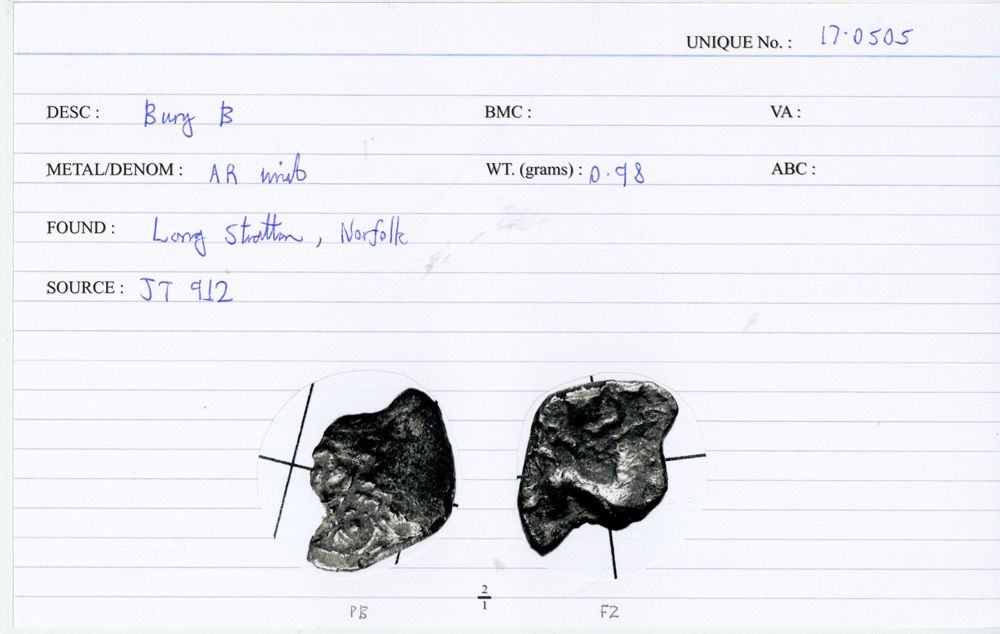 UNIQUE No. : 17.0505
DESC : Bury B BMC : VA :
METAL/DENOM : AR unit WT. (grams) : 0.98 ABC :
FOUND : Long Stratton, Norfolk
SOURCE : JT 912
2
1
PB FZ